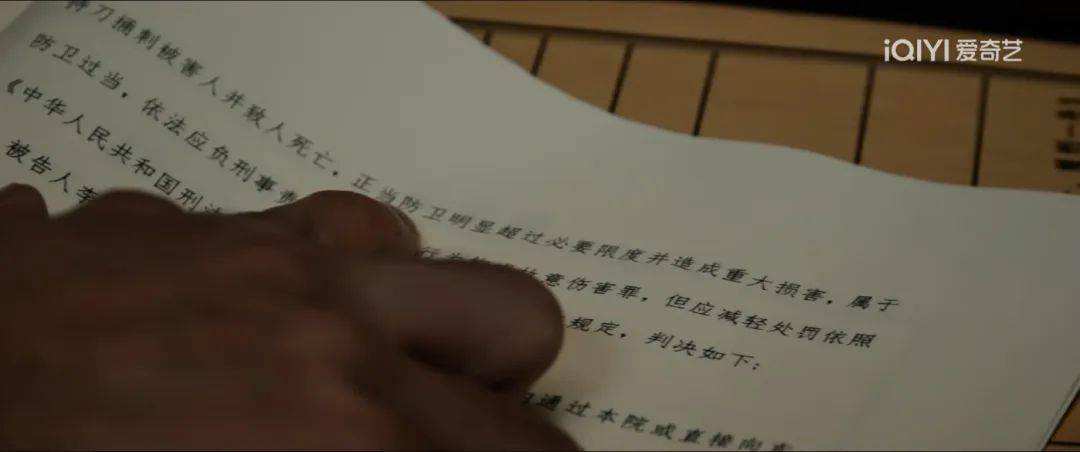 iQIYI 爱奇艺
持刀捅刺被害人并致人死亡，正当防卫明显超过必要限度并造成重大损害，属于
防卫过当，依法应负刑事责 意伤害罪，但应减轻处罚依照
《中华人民共和国刑法 规定，判决如下：
被告人李 通过本院或直接向